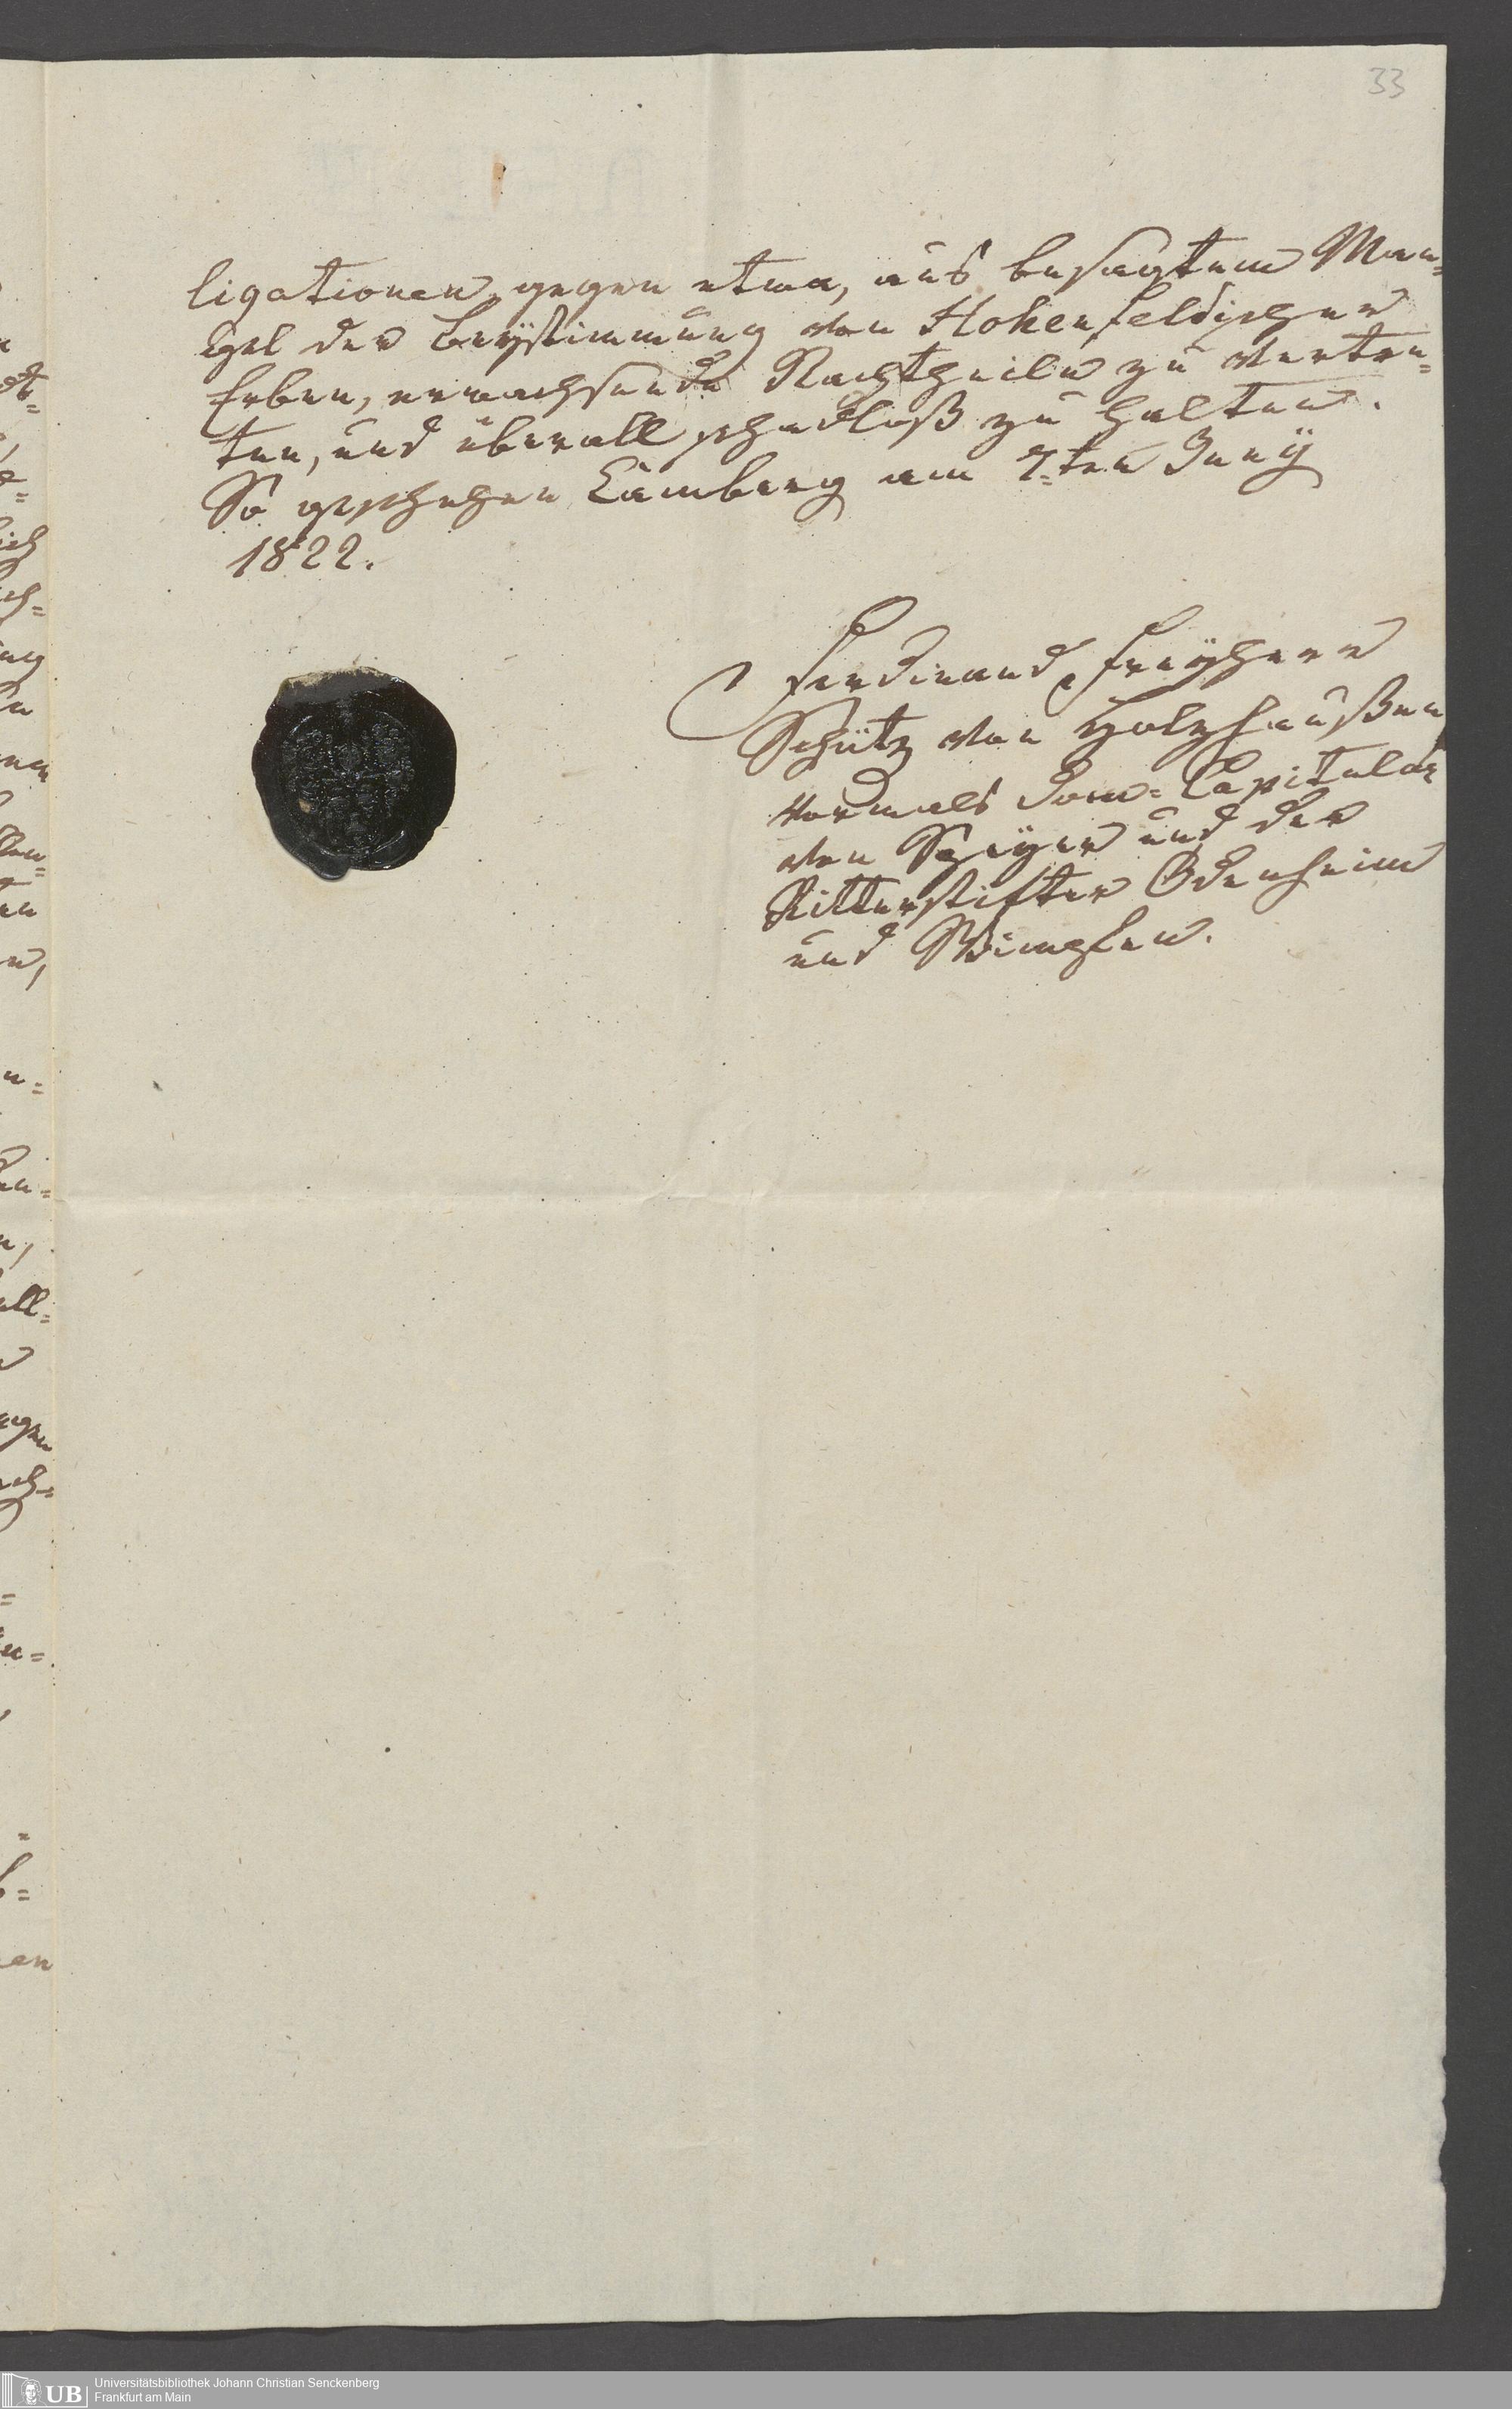 33
ligationen, gegen etwa, aus besagtem Man=
gel der Beÿstimmung von Hohenfeldischer
Erben, erwachsende Nachtheile zu vertre=
ten, und überall schadloß zu halten.
So geschehen Camberg am 7=ten Junÿ
1822.
Ferdinand Freÿherr
Schütz von Holzhaußen
vormals Dom=Capitular
von Speÿer und der
Ritterstifter Odenheim
und Wimpfen.
UB
Universitätsbibliothek Johann Christian Senckenberg
Frankfurt am Main